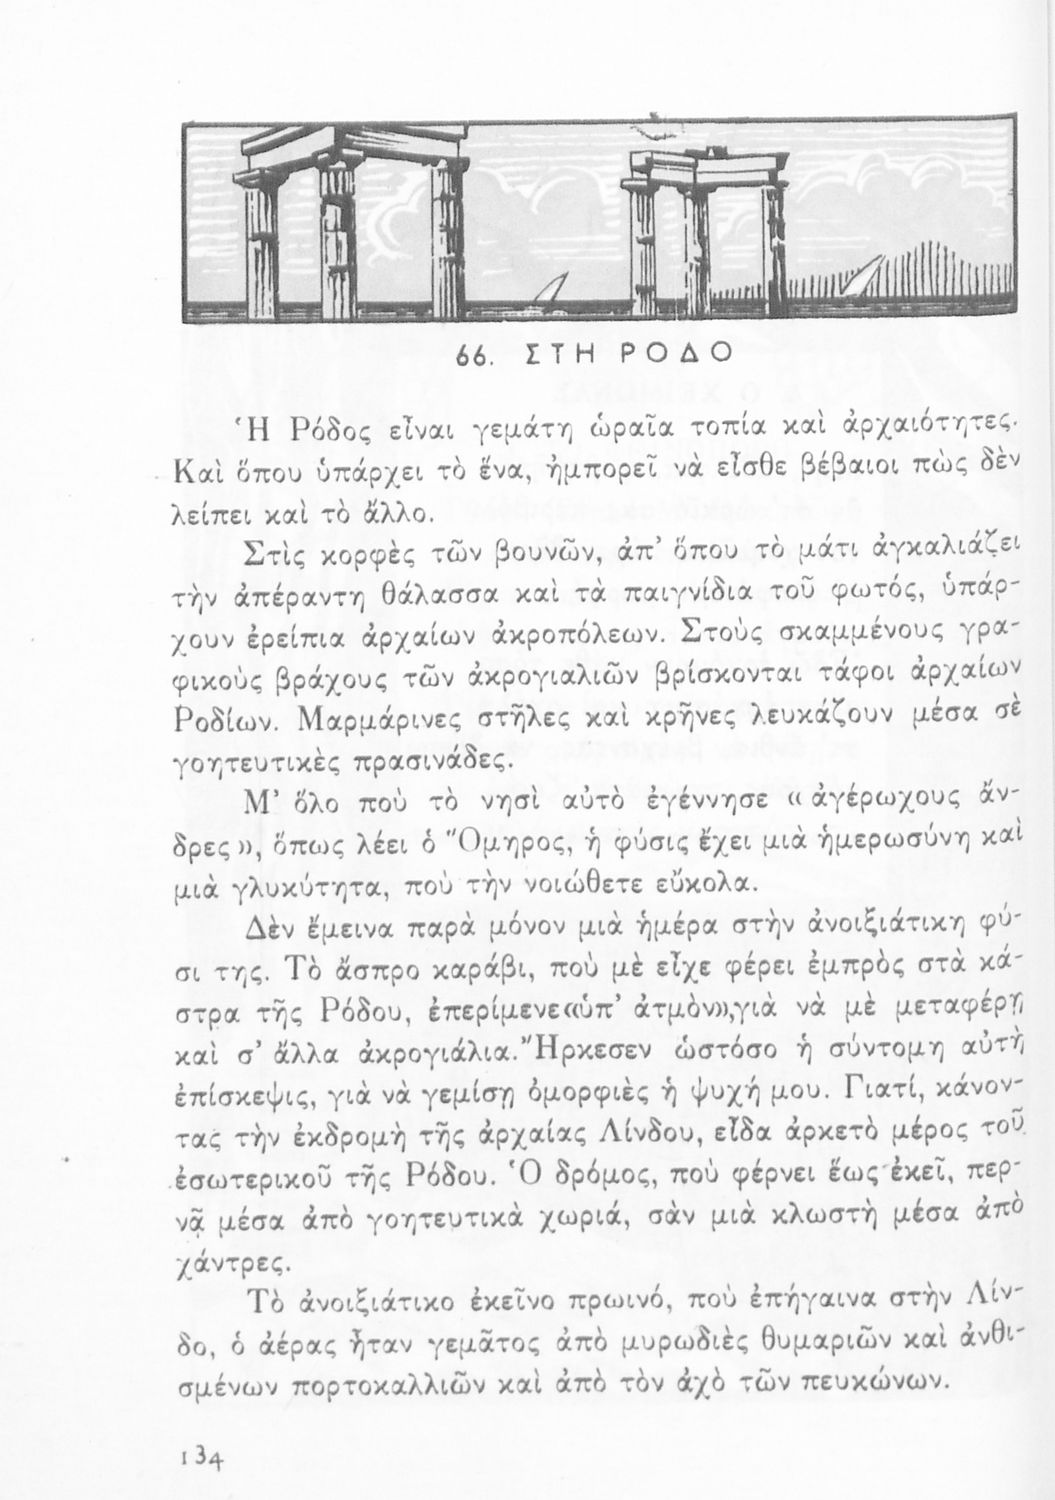 66. ΣΤΗ ΡΟΔΟ
Ἡ Ρόδος εἶναι γεμάτη ὡραῖα τοπία καὶ ἀρχαιότητες.
Καὶ ὅπου ὑπάρχει τὸ ἕνα, ἠμπορεῖ νὰ εἶσθε βέβαιοι πὼς δὲν
λείπει καὶ τὸ ἄλλο.
Στὶς κορφὲς τῶν βουνῶν, ἀπ’ ὅπου τὸ μάτι ἀγκαλιάζει
τὴν ἀπέραντη θάλασσα καὶ τὰ παιγνίδια τοῦ φωτός, ὑπάρ-
χουν ἐρείπια ἀρχαίων ἀκροπόλεων. Στοὺς σκαμμένους γρα-
φικοὺς βράχους τῶν ἀκρογιαλιῶν βρίσκονται τάφοι ἀρχαίων
Ροδίων. Μαρμάρινες στῆλες καὶ κρῆνες λευκάζουν μέσα σὲ
γοητευτικὲς πρασινάδες.
Μ’ ὅλο ποὺ τὸ νησὶ αὐτὸ ἐγέννησε « ἀγέρωχους ἄν-
δρες », ὅπως λέει ὁ Ὅμηρος, ἡ φύσις ἔχει μιὰ ἡμερωσύνη καὶ
μιὰ γλυκύτητα, ποὺ τὴν νοιώθετε εὔκολα.
Δὲν ἔμεινα παρὰ μόνον μιὰ ἡμέρα στὴν ἀνοιξιάτικη φύ-
σι της. Τὸ ἄσπρο καράβι, ποὺ μὲ εἶχε φέρει ἐμπρὸς στὰ κά-
στρα τῆς Ρόδου, ἐπερίμενε«ὑπ’ ἀτμὸν»,γιὰ νὰ μὲ μεταφέρῃ
καὶ σ’ ἄλλα ἀκρογιάλια. Ἤρκεσεν ὡστόσο ἡ σύντομη αὐτὴ
ἐπίσκεψις, γιὰ νὰ γεμίσῃ ὀμορφιὲς ἡ ψυχή μου. Γιατί, κάνον-
τας τὴν ἐκδρομὴ τῆς ἀρχαίας Λίνδου, εἶδα ἀρκετὸ μέρος τοῦ
ἐσωτερικοῦ τῆς Ρόδου. Ὁ δρόμος, ποὺ φέρνει ἕως ἐκεῖ, περ-
νᾷ μέσα ἀπὸ γοητευτικὰ χωριά, σὰν μιὰ κλωστὴ μέσα ἀπὸ
χάντρες.
Τὸ ἀνοιξιάτικο ἐκεῖνο πρωινό, ποὺ ἐπήγαινα στὴν Λίν-
δο, ὁ ἀέρας ἦταν γεμᾶτος ἀπὸ μυρωδιὲς θυμαριῶν καὶ ἀνθι-
σμένων πορτοκαλλιῶν καὶ ἀπὸ τὸν ἀχὸ τῶν πευκώνων.
134